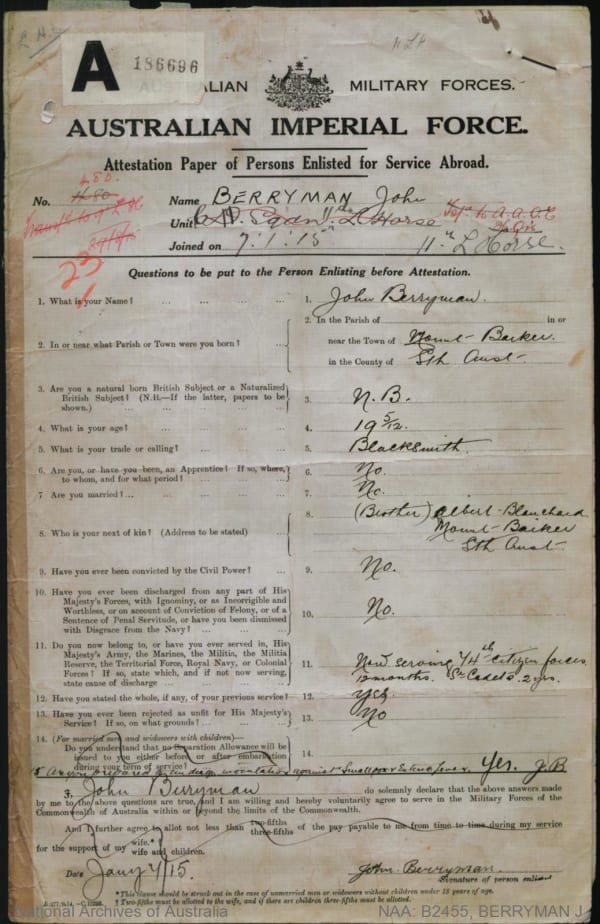 A 186696
AUSTRALIAN MILITARY FORCES.
AUSTRALIAN IMPERIAL FORCE.
Attestation Paper of Persons Enlisted for Service Abroad.
480.
No. Name BERRYMAN John
Unit L Horse
Joined on 7.1.15 11th L Horse.
23
Questions to be put to the Person Enlisting before Attestation.
1. What is your Name? ... ... ... 1. John Berryman.
2. In or near what Parish or Town were you born? ... 2. In the Parish of in or
near the Town of Mount Barker.
in the County of Sth Aust.
3. Are you a natural born British Subject or a Naturalized
British Subject? (N.B.—If the latter, papers to be
shown.) ... ... ... ... 3. N.B.
4. What is your age? ... ... ... 4. 19 5/12.
5. What is your trade or calling? ... ... 5. Blacksmith.
6. Are you, or have you been, an Apprentice? If so, where,
to whom, and for what period? ... ... 6. No.
7. Are you married? ... ... ... 7. No.
8. Who is your next of kin? (Address to be stated) ... 8. (Brother) Albert Blanchard
Mount Barker
Sth Aust
9. Have you ever been convicted by the Civil Power? ... 9. No.
10. Have you ever been discharged from any part of His
Majesty's Forces, with Ignominy, or as Incorrigible and
Worthless, or on account of Conviction of Felony, or of a
Sentence of Penal Servitude, or have you been dismissed
with Disgrace from the Navy? ... ... 10. No.
11. Do you now belong to, or have you ever served, in His
Majesty's Army, the Marines, the Militia, the Militia
Reserve, the Territorial Force, Royal Navy, or Colonial
Forces? If so, state which, and if not now serving,
state cause of discharge ... ... 11. Now serving 74th Citizen forces
12 months. Sr Cadets 2 yrs.
12. Have you stated the whole, if any, of your previous service? 12. Yes.
13. Have you ever been rejected as unfit for His Majesty's
Service? If so, on what grounds? ... ... 13. No
14. (For married men and widowers with children)—
Do you understand that no Separation Allowance will be
issued to you either before or after embarkation
during your term of service? ... 14.
Are you prepared to undergo inoculation against Smallpox & Enteric fever. Yes. J.B
I, John Berryman do solemnly declare that the above answers made
by me to the above questions are true, and I am willing and hereby voluntarily agree to serve in the Military Forces of the
Commonwealth of Australia within or beyond the limits of the Commonwealth.
And I further agree to allot not less than two-fifths three-fifths of the pay payable to me from time to time during my service
for the support of my wife.* wife and children.
Date Jany 4/15. John Berryman.
Signature of person enlisted.
* This clause should be struck out in the case of unmarried men or widowers without children under 18 years of age.
† Two-fifths must be allotted to the wife, and if there are children three-fifths must be allotted.
National Archives of Australia NAA: B2455, BERRYMAN J